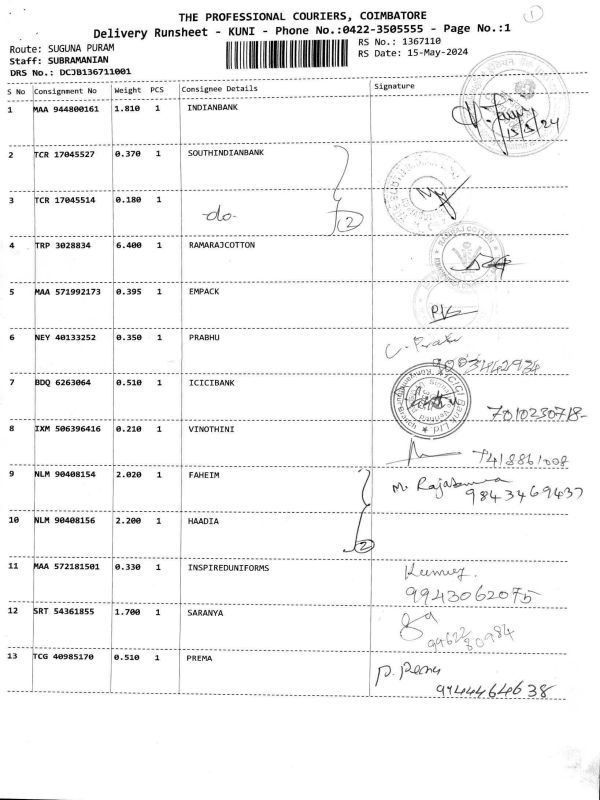 1
THE PROFESSIONAL COURIERS, COIMBATORE
Delivery Runsheet - KUNI - Phone No.:0422-3505555 - Page No.:1
Route: SUGUNA PURAM
RS No.: 1367110
Staff: SUBRAMANIAN
RS Date: 15-May-2024
DRS No.: DCJB136711001
S No Consignment No Weight PCS Consignee Details Signature
1 MAA 944800161 1.810 1 INDIANBANK
15/5/24
2 TCR 17045527 0.370 1 SOUTHINDIANBANK
3 TCR 17045514 0.180 1 -do- 2
4 TRP 3028834 6.400 1 RAMARAJCOTTON
5 MAA 571992173 0.395 1 EMPACK
6 NEY 40133252 0.350 1 PRABHU
9003462934
7 BDQ 6263064 0.510 1 ICICIBANK
ICICI Bank Ltd
7010230718-
8 IXM 506396416 0.210 1 VINOTHINI
7418861008
9 NLM 90408154 2.020 1 FAHEIM
9843469437
10 NLM 90408156 2.200 1 HAADIA
2
11 MAA 572181501 0.330 1 INSPIREDUNIFORMS
9943062075
12 SRT 54361855 1.700 1 SARANYA
9962280984
13 TCG 40985170 0.510 1 PREMA
9444464638